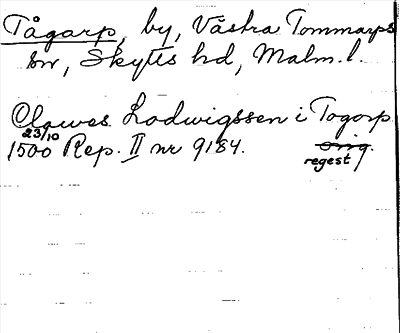 Tågarp, by, Västra Tommarps
sn, Skytts hd, Malm. l.
Clawes Lodwigssen i Togorp
23/10
1500 Rep. II nr 9184. orig.
regest